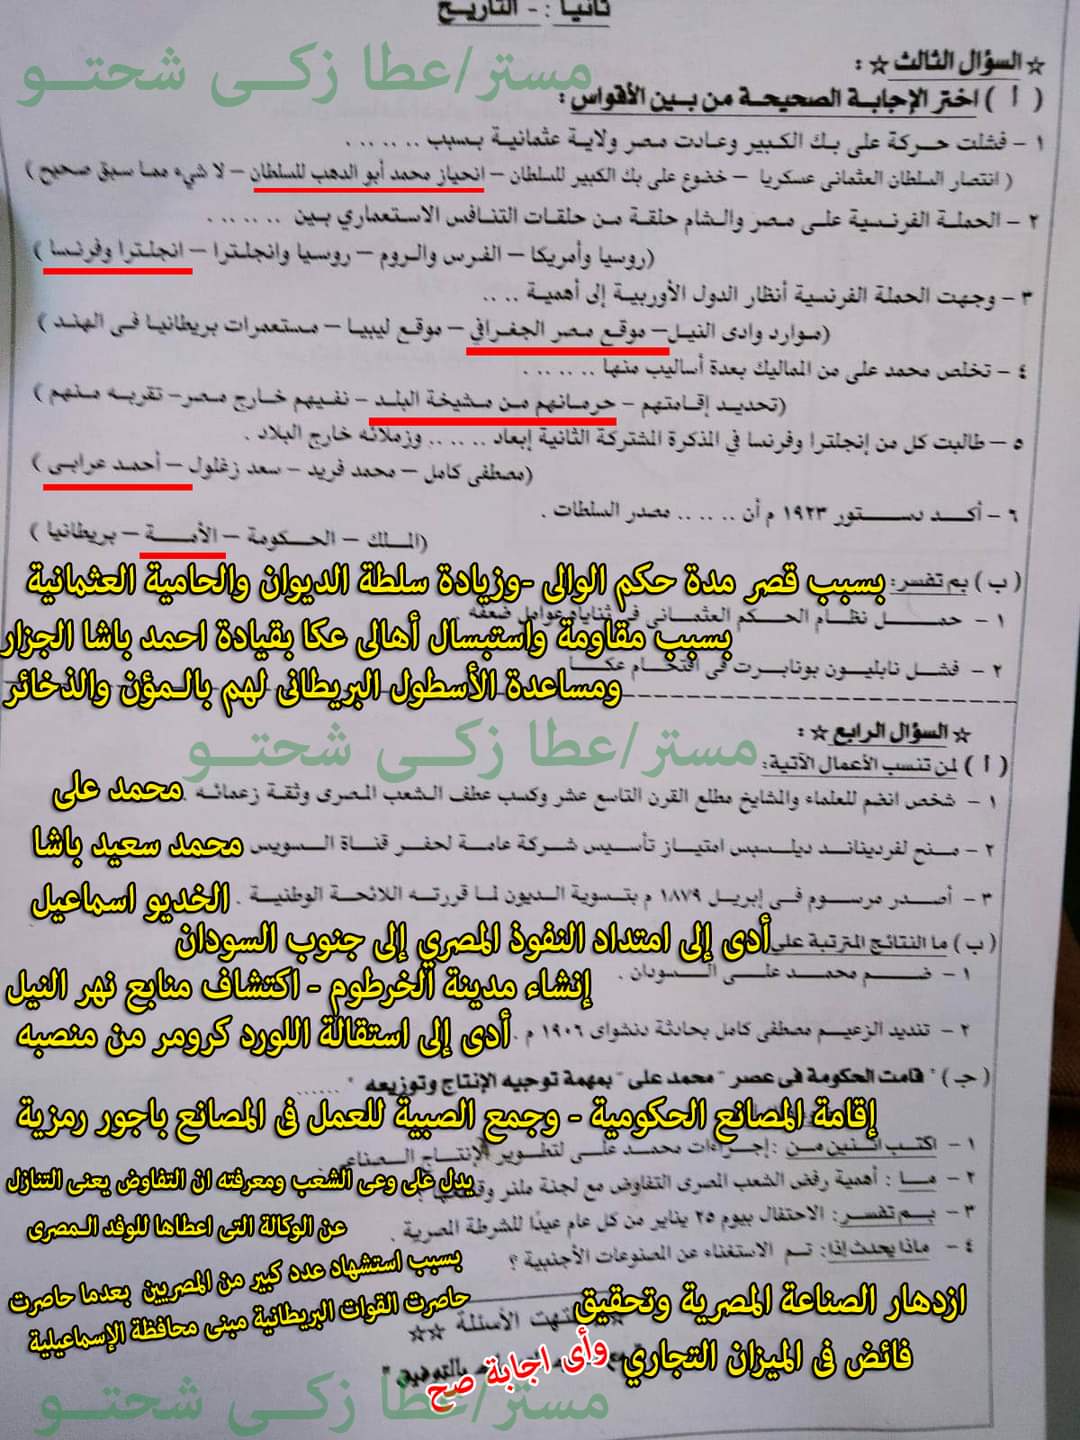 ثانيا : - التاريخ
مستر/عطا زكى شحتو
☆ السؤال الثالث ☆ :
( أ ) اختر الإجابة الصحيحة من بين الأقواس :
١ - فشلت حركة على بك الكبير وعادت مصر ولاية عثمانية بسبب .. .. ..
( انتصار السلطان العثمانى عسكريا - خضوع على بك الكبير للسلطان - انحياز محمد أبو الدهب للسلطان - لا شيء مما سبق صحيح )
٢ - الحملة الفرنسية على مصر والشام حلقة من حلقات التنافس الاستعماري بين .. .. ..
(روسيا وأمريكا - الفرس والروم - روسيا وانجلترا - انجلترا وفرنسا )
٣ - وجهت الحملة الفرنسية أنظار الدول الأوربية إلى أهمية .. ..
(موارد وادى النيل - موقع مصر الجغرافي - موقع ليبيا - مستعمرات بريطانيا فى الهند )
٤ - تخلص محمد على من المماليك بعدة أساليب منها .. .. ..
(تحديد إقامتهم - حرمانهم من مشيخة البلد - نفيهم خارج مصر - تقريبه منهم )
٥ - طالبت كل من إنجلترا وفرنسا في المذكرة المشتركة الثانية إبعاد .. .. .. وزملائه خارج البلاد .
(مصطفى كامل - محمد فريد - سعد زغلول - أحمد عرابى )
٦ - أكد دستور ١٩٢٣ م أن .. .. .. مصدر السلطات .
(الملك - الحكومة - الأمة - بريطانيا )
( ب ) بم تفسر: بسبب قصر مدة حكم الوالى -وزيادة سلطة الديوان والحامية العثمانية
١ - حمل نظام الحكم العثمانى فى ثناياه عوامل ضعفه
بسبب مقاومة واستبسال أهالى عكا بقيادة احمد باشا الجزار
٢ - فشل نابليون بونابرت فى اقتحام عكا
ومساعدة الأسطول البريطانى لهم بالمؤن والذخائر
مستر/عطا زكى شحتو
☆ السؤال الرابع ☆ :
( أ ) لمن تنسب الأعمال الآتية:
١ - شخص انضم للعلماء والمشايخ مطلع القرن التاسع عشر وكسب عطف الشعب المصرى وثقة زعمائه . محمد على
٢ - منح لفرديناند ديلسبس امتياز تأسيس شركة عامة لحفر قناة السويس محمد سعيد باشا
٣ - أصدر مرسوم فى إبريل ١٨٧٩ م بتسوية الديون لما قررته اللائحة الوطنية . الخديو اسماعيل
( ب ) ما النتائج المترتبة على أدى إلى امتداد النفوذ المصري إلى جنوب السودان
١ - ضم محمد على السودان .
إنشاء مدينة الخرطوم - اكتشاف منابع نهر النيل
٢ - تنديد الزعيم مصطفى كامل بحادثة دنشواى ١٩٠٦ م . أدى إلى استقالة اللورد كرومر من منصبه
( جـ ) " قامت الحكومة فى عصر " محمد على " بمهمة توجيه الإنتاج وتوزيعه " ......
إقامة المصانع الحكومية - وجمع الصبية للعمل فى المصانع باجور رمزية
١ - اكتب اثنين من : إجراءات محمد على لتطوير الإنتاج الصناعى
٢ - ما : أهمية رفض الشعب المصرى التفاوض مع لجنة ملنر
يدل على وعى الشعب ومعرفته ان التفاوض يعنى التنازل
عن الوكالة التى اعطاها للوفد المصرى
٣ - بم تفسر: الاحتفال بيوم ٢٥ يناير من كل عام عيدًا للشرطة المصرية .
بسبب استشهاد عدد كبير من المصريين بعدما حاصرت
حاصرت القوات البريطانية مبنى محافظة الإسماعيلية
٤ - ماذا يحدث إذا: تم الاستغناء عن المصنوعات الأجنبية ؟
ازدهار الصناعة المصرية وتحقيق
فائض فى الميزان التجاري
انتهت الأسئلة ☆☆
بالتوفيق "
وأى اجابة صح
مستر/عطا زكى شحتو